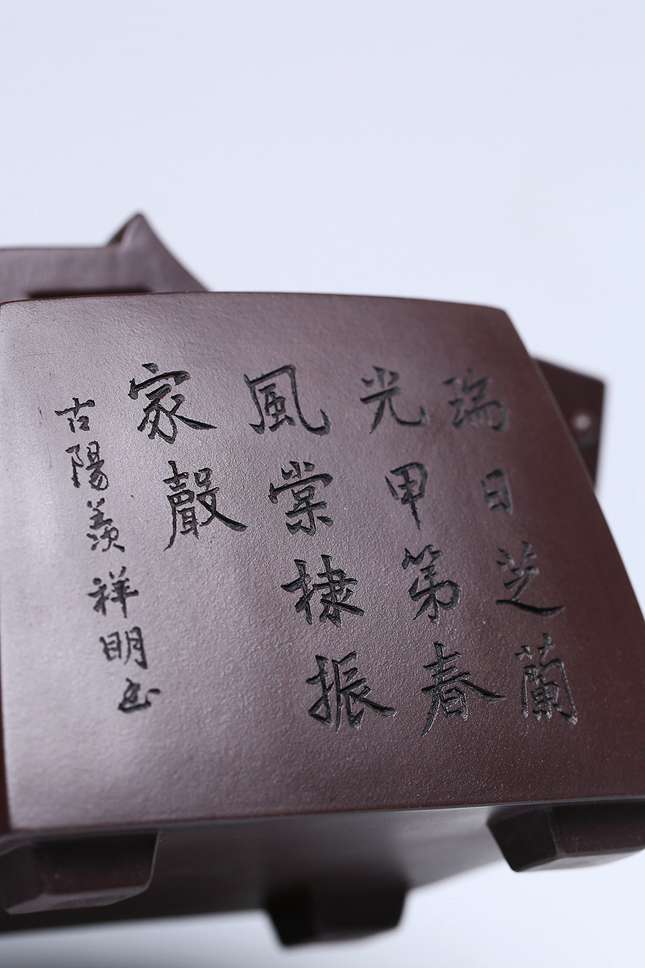 瑞日芝蘭
光甲第春
風棠棣振
家聲
古陽羨祥明书